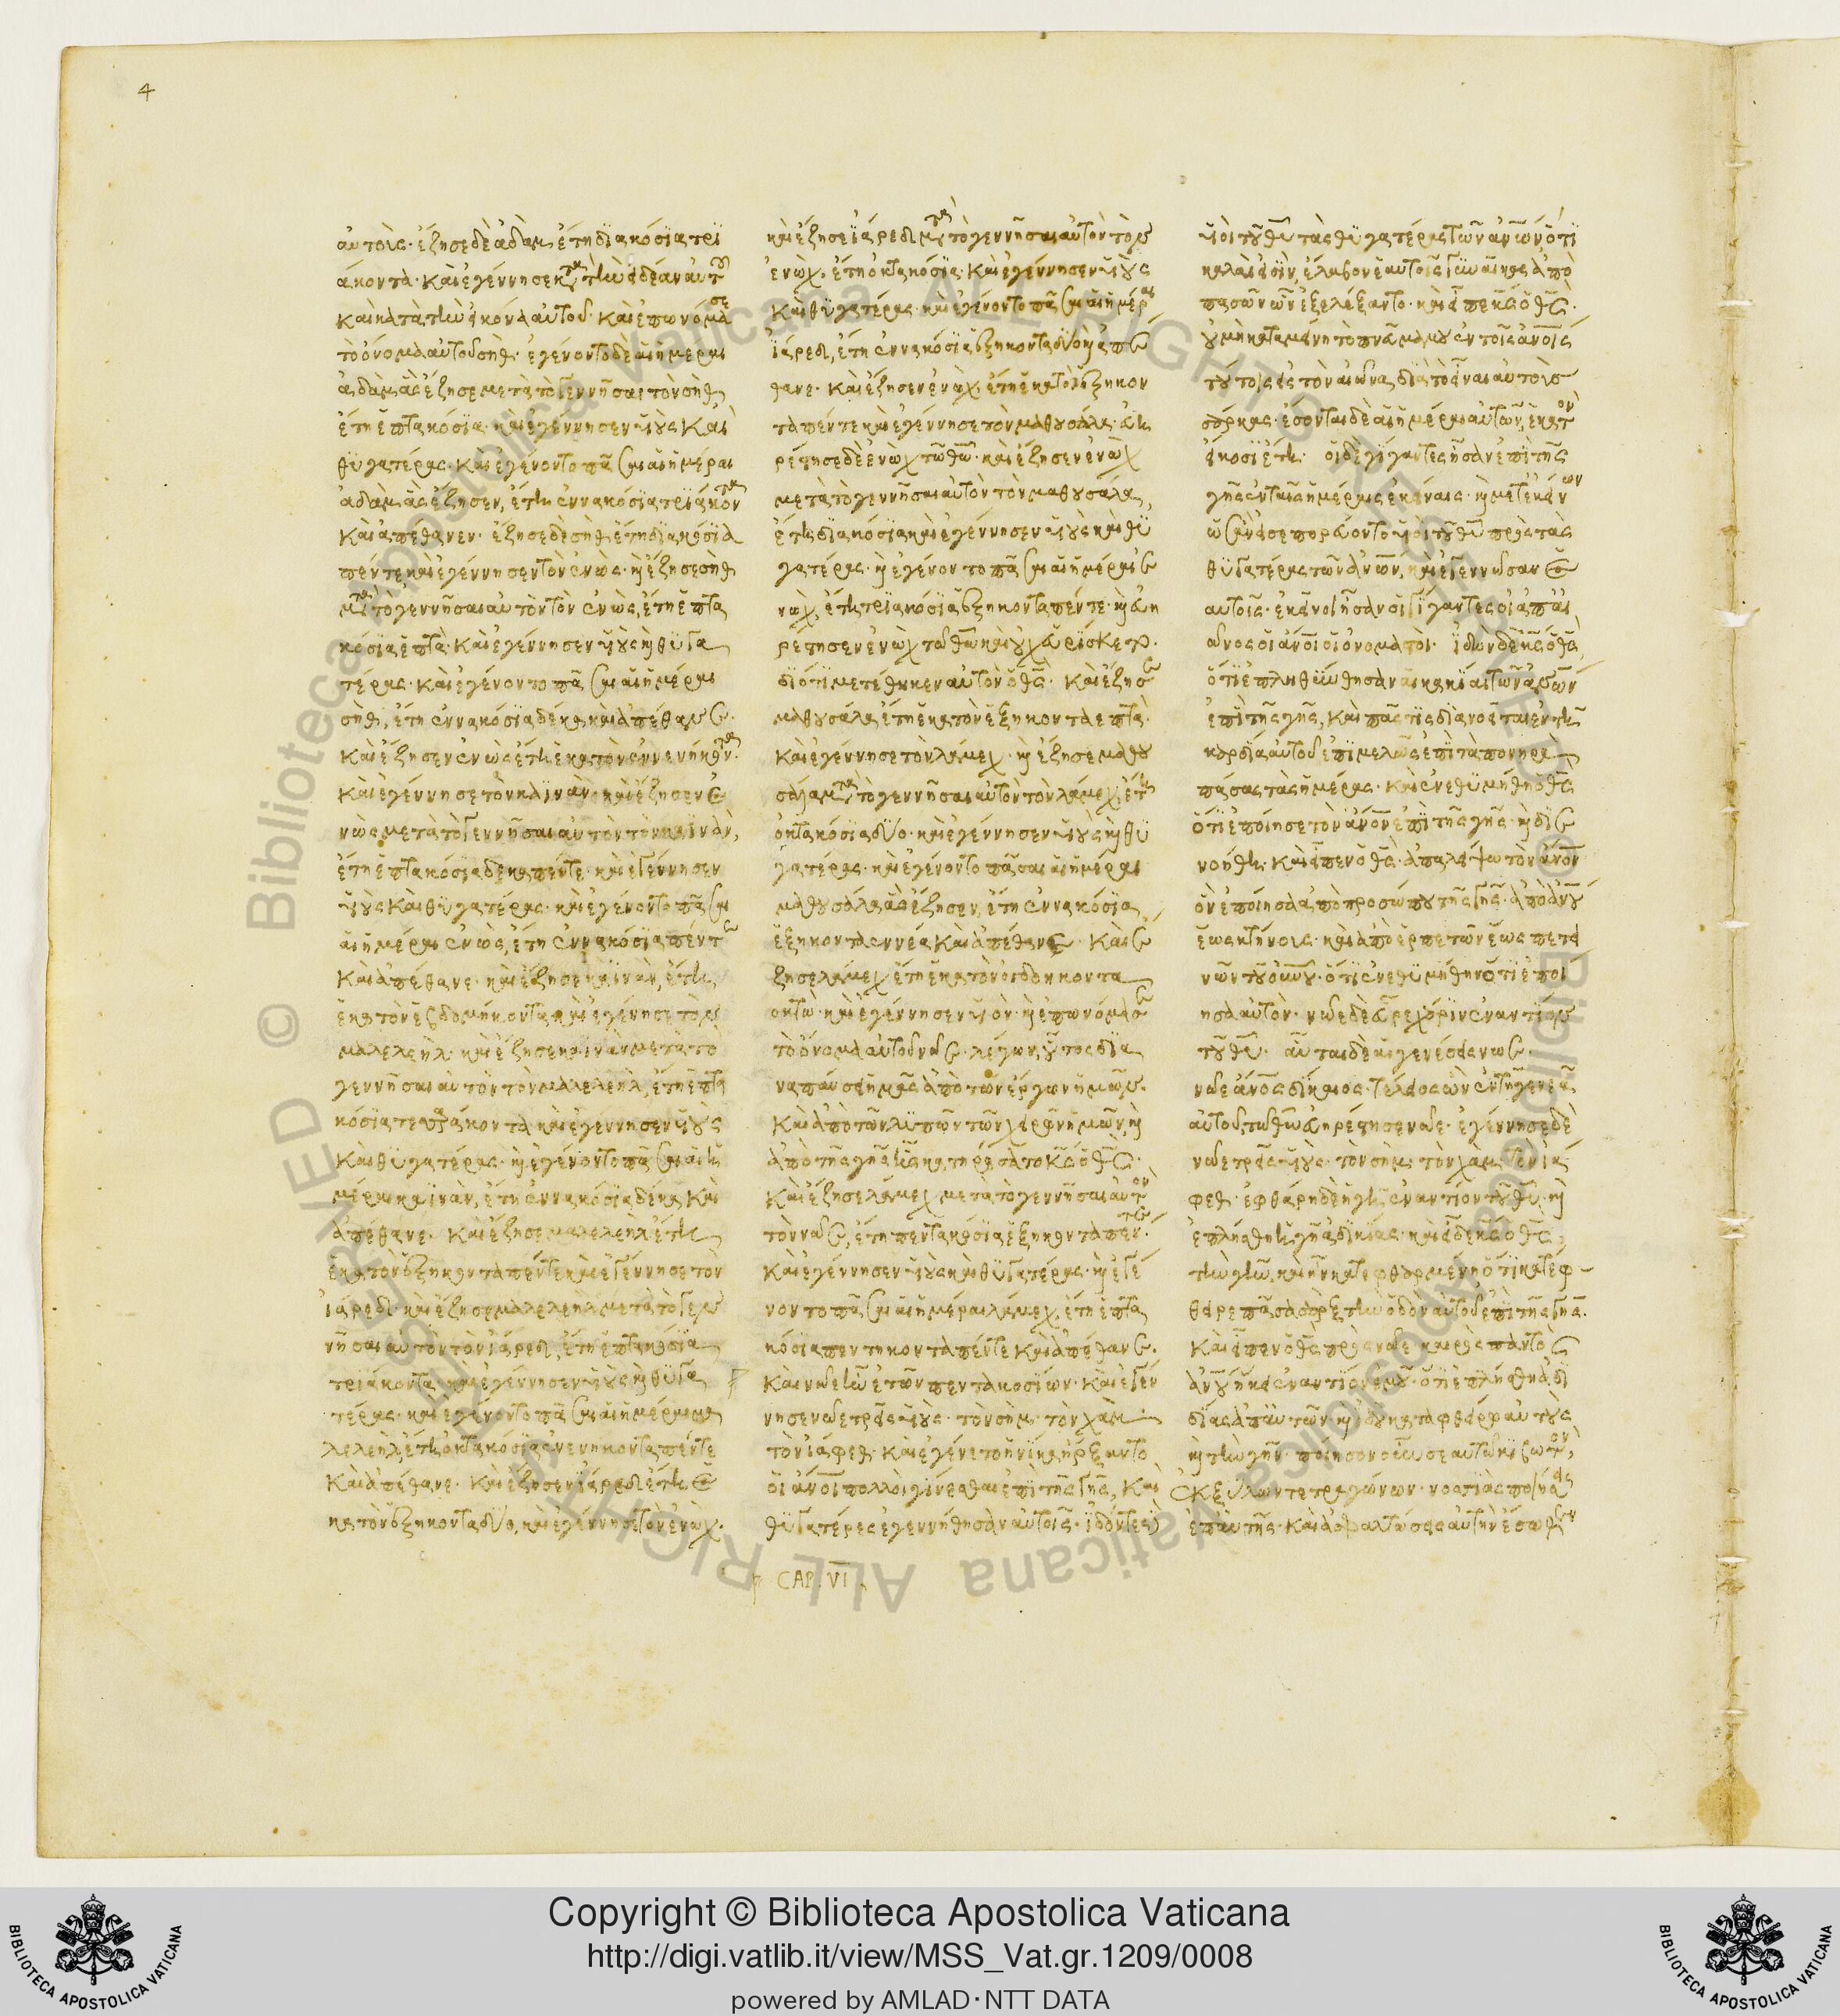 4
αὐτοὺς. ἔζησε δὲ ἀδὰμ, ἔτη διακόσια τρι
άκοντα. καὶ ἐγέννησε κατὰ τὴν ἰδέαν αὐτοῦ
καὶ κατὰ τὴν εἰκόνα αὐτοῦ. καὶ ἐπωνόμασε
τὸ ὄνομα αὐτοῦ σήθ. ἐγένοντο δὲ αἱ ἡμέραι
ἀδὰμ ἃς ἔζησε μετὰ τὸ γεννῆσαι τὸν σὴθ,
ἔτη ἑπτακόσια. καὶ ἐγέννησεν υἱοὺς καὶ
θυγατέρας. καὶ ἐγένοντο πᾶσαι αἱ ἡμέραι
ἀδὰμ ἃς ἔζησεν, ἔτη ἐννακόσια τριάκοντα
καὶ ἀπέθανεν. ἔζησε δὲ σὴθ ἔτη διακόσια
πέντε καὶ ἐγέννησεν τὸν ἐνώς. καὶ ἔζησε σὴθ
μετὰ τὸ γεννῆσαι αὐτὸν τὸν ἐνὼς, ἔτη ἑπτα
κόσια ἑπτὰ. καὶ ἐγέννησεν υἱοὺς καὶ θυγα
τέρας. καὶ ἐγένοντο πᾶσαι αἱ ἡμέραι
σὴθ, ἔτη ἐννακόσια δέκα, καὶ ἀπέθανεν.
καὶ ἔζησεν ἐνὼς ἔτη ἑκατὸν ἐννενήκοντα.
καὶ ἐγέννησε τὸν καϊνὰν. καὶ ἔζησεν ἐ
νὼς μετὰ τὸ γεννῆσαι αὐτὸν τὸν καϊνὰν,
ἔτη ἑπτακόσια δεκαπέντε. καὶ ἐγέννησεν
υἱοὺς καὶ θυγατέρας. καὶ ἐγένοντο πᾶσαι
αἱ ἡμέραι ἐνὼς, ἔτη ἐννακόσια πέντε
καὶ ἀπέθανε. καὶ ἔζησε καϊνὰν, ἔτη
ἑκατὸν ἑβδομήκοντα, καὶ ἐγέννησε τὸν
μαλελεήλ. καὶ ἔζησε καϊνὰν μετὰ τὸ
γεννῆσαι αὐτὸν τὸν μαλελεὴλ, ἔτη ἑπτα
κόσια τεσσαράκοντα καὶ ἐγέννησεν υἱοὺς
καὶ θυγατέρας. καὶ ἐγένοντο πᾶσαι αἱ ἡ
μέραι καϊνὰν, ἔτη ἐννακόσια δέκα καὶ
ἀπέθανε. καὶ ἔζησε μαλελεὴλ ἔτη
ἑκατὸν ἑξήκοντα πέντε καὶ ἐγέννησε τὸν
ἰάρεδ. καὶ ἔζησε μαλελεὴλ μετὰ τὸ γεν
νῆσαι αὐτὸν τὸν ἰάρεδ, ἔτη ἑπτακόσια
τριάκοντα καὶ ἐγέννησεν υἱοὺς καὶ θυγα
τέρας. καὶ ἐγένοντο πᾶσαι αἱ ἡμέραι μα
λελεὴλ, ἔτη ὀκτακόσια ἐνενήκοντα πέντε
καὶ ἀπέθανε. καὶ ἔζησεν ἰάρεδ ἔτη ἑ
κατὸν ἑξήκοντα δύο, καὶ ἐγέννησε τὸν ἐνώχ.
καὶ ἔζησε ἰάρεδ μετὰ τὸ γεννῆσαι αὐτὸν τὸν
ἐνὼχ, ἔτη ὀκτακόσια. καὶ ἐγέννησεν υἱοὺς
καὶ θυγατέρας. καὶ ἐγένοντο πᾶσαι αἱ ἡμέραι
ἰάρεδ, ἔτη ἐννακόσια ἑξήκοντα δύο καὶ ἀπέ
θανε. καὶ ἔζησεν ἐνὼχ ἔτη ἑκατὸν ἑξήκον
τα πέντε καὶ ἐγέννησε τὸν μαθουσάλα. εὐη
ρέστησε δὲ ἐνὼχ τῷ θω. καὶ ἔζησεν ἐνὼχ
μετὰ τὸ γεννῆσαι αὐτὸν τὸν μαθουσάλα,
ἔτη διακόσια καὶ ἐγέννησεν υἱοὺς καὶ θυ
γατέρας. καὶ ἐγένοντο πᾶσαι αἱ ἡμέραι ἐ
νὼχ, ἔτη τριακόσια ἑξήκοντα πέντε. καὶ εὐη
ρέστησεν ἐνὼχ τῷ θω καὶ οὐχ εὑρίσκετο.
διότι μετέθηκεν αὐτὸν ὁ θς. καὶ ἔζησε
μαθουσάλα ἔτη ἑκατὸν ἑξήκοντα ἑπτὰ.
καὶ ἐγέννησε τὸν λάμεχ. καὶ ἔζησε μαθου
σάλα μετὰ τὸ γεννῆσαι αὐτὸν τὸν λάμεχ, ἔτη
ὀκτακόσια δύο. καὶ ἐγέννησεν υἱοὺς καὶ θυ
γατέρας. καὶ ἐγένοντο πᾶσαι αἱ ἡμέραι
μαθουσάλα ἃς ἔζησεν, ἔτη ἐννακόσια
ἑξήκοντα ἐννέα καὶ ἀπέθανε. καὶ ἔ
ζησε λάμεχ ἔτη ἑκατὸν ὀγδοήκοντα
ὀκτὼ. καὶ ἐγέννησεν υἱὸν. καὶ ἐπωνόμασε
τὸ ὄνομα αὐτοῦ νῶε. λέγων, οὗτος δια
ναπαύσει ἡμᾶς ἀπὸ τῶν ἔργων ἡμῶν.
καὶ ἀπὸ τῶν λυπῶν τῶν χειρῶν ἡμῶν, καὶ
ἀπὸ τῆς γῆς ἧς κατηράσατο κς ὁ θς.
καὶ ἔζησε λάμεχ μετὰ τὸ γεννῆσαι αὐτὸν
τὸν νῶε, ἔτη πεντακόσια ἑξήκοντα πέντε.
καὶ ἐγέννησεν υἱοὺς καὶ θυγατέρας. καὶ ἐγέ
νοντο πᾶσαι αἱ ἡμέραι λάμεχ, ἔτη ἑπτα
κόσια πεντήκοντα πέντε καὶ ἀπέθανεν.
καὶ νῶε ἦν ἐτῶν πεντακοσίων. καὶ ἐγέν
νησε νῶε τρεῖς υἱοὺς. τὸν σὴμ. τὸν χὰμ
τὸν ἰάφεθ. καὶ ἐγένετο ἡνίκα ἤρξαντο
οἱ ἄνοι πολλοὶ γίνεσθαι ἐπὶ τῆς γῆς, καὶ
θυγατέρες ἐγεννήθησαν αὐτοῖς. ἰδόντες δὲ
CAP. VI
υἱοὶ τοῦ θυ τὰς θυγατέρας τῶν ἀνων, ὅτι
καλαὶ εἰσὶν, ἔλαβον ἑαυτοῖς γυναῖκας ἀπὸ
πασῶν ὧν ἐξελέξαντο. καὶ εἶπε κς ὁ θς.
οὐ μὴ καταμείνῃ τὸ πνεῦμά μου ἐν τοῖς ἀνοις
τούτοις εἰς τὸν αἰῶνα, διὰ τὸ εἶναι αὐτοὺς
σάρκας. ἔσονται δὲ αἱ ἡμέραι αὐτῶν, ἑκατὸν
εἴκοσι ἔτη. οἱ δὲ γίγαντες ἦσαν ἐπὶ τῆς
γῆς ἐν ταῖς ἡμέραις ἐκείναις. καὶ μετ' ἐκεῖνων
ὡς ἂν εἰσεπορεύοντο υἱοὶ τοῦ θυ πρὸς τὰς
θυγατέρας τῶν ἀνων, καὶ ἐγέννωσαν ἑ
αυτοῖς. ἐκεῖνοι ἦσαν οἱ γίγαντες οἱ ἀπ' αἰ
ῶνος οἱ ἄνοι οἱ ὀνομαστοὶ. ἰδὼν δὲ κς ὁ θς,
ὅτι ἐπληθύνθησαν αἱ κακίαι τῶν ἀνων
ἐπὶ τῆς γῆς, καὶ πᾶς τις διανοεῖται ἐν τῇ
καρδίᾳ αὐτοῦ ἐπιμελῶς ἐπὶ τὰ πονηρὰ
πάσας τὰς ἡμέρας. καὶ ἐνεθυμήθη ὁ θς
ὅτι ἐποίησε τὸν ἄνον ἐπὶ τῆς γῆς καὶ διε
νοήθη. καὶ εἶπεν ὁ θς. ἀπαλείψω τὸν ἄνον
ὃν ἐποίησα ἀπὸ προσώπου τῆς γῆς. ἀπὸ ἀνου
ἕως κτήνους. καὶ ἀπὸ ἑρπετῶν ἕως πετει
νῶν τοῦ ουνου. ὅτι ἐνεθυμήθην ὅτι ἐποί
ησα αὐτὸν. νῶε δὲ εὗρε χάριν ἐναντίον
τοῦ θυ. αὗται δὲ αἱ γενέσεις νῶε.
νῶε ἄνος δίκαιος. τέλειος ὢν ἐν τῇ γενεᾷ
αὐτοῦ, τῷ θω εὐηρέστησε νῶε. ἐγέννησε δὲ
νῶε τρεῖς υἱοὺς. τὸν σὴμ. τὸν χὰμ. τὸν ἰά
φεθ. ἐφθάρη δὲ ἡ γῆ ἐναντίον τοῦ θυ. καὶ
ἐπλήσθη ἡ γῆ ἀδικίας. καὶ εἶδε κς ὁ θς,
τὴν γῆν, καὶ ἦν κατεφθαρμένη. ὅτι κατέφ
θειρε πᾶσα σὰρξ τὴν ὁδὸν αὐτοῦ ἐπὶ τῆς γῆς.
καὶ εἶπεν ὁ θς πρὸς νῶε. καιρὸς παντὸς
ἀνου ἥκει ἐναντίον ἐμοῦ. ὅτι ἐπλήσθη ἡ γῆ
ἀδικίας ἀπ' αὐτῶν. καὶ ἰδοὺ καταφθείρω αὐτοὺς
καὶ τὴν γῆν. ποίησον οὖν σεαυτῷ κιβωτὸν
ἐκ ξύλων τετραγώνων. νοσσιὰς ποιήσεις
ἐπ' αὐτῆς. καὶ ἀσφαλτώσεις αὐτὴν ἔσωθεν
Copyright © Biblioteca Apostolica Vaticana
http://digi.vatlib.it/view/MSS_Vat.gr.1209/0008
powered by AMLAD·NTT DATA
BIBLIOTECA APOSTOLICA VATICANA
BIBLIOTECA APOSTOLICA VATICANA
© Biblioteca Apostolica Vaticana ALL RIGHTS RESERVED
© Biblioteca Apostolica Vaticana ALL RIGHTS RESERVED